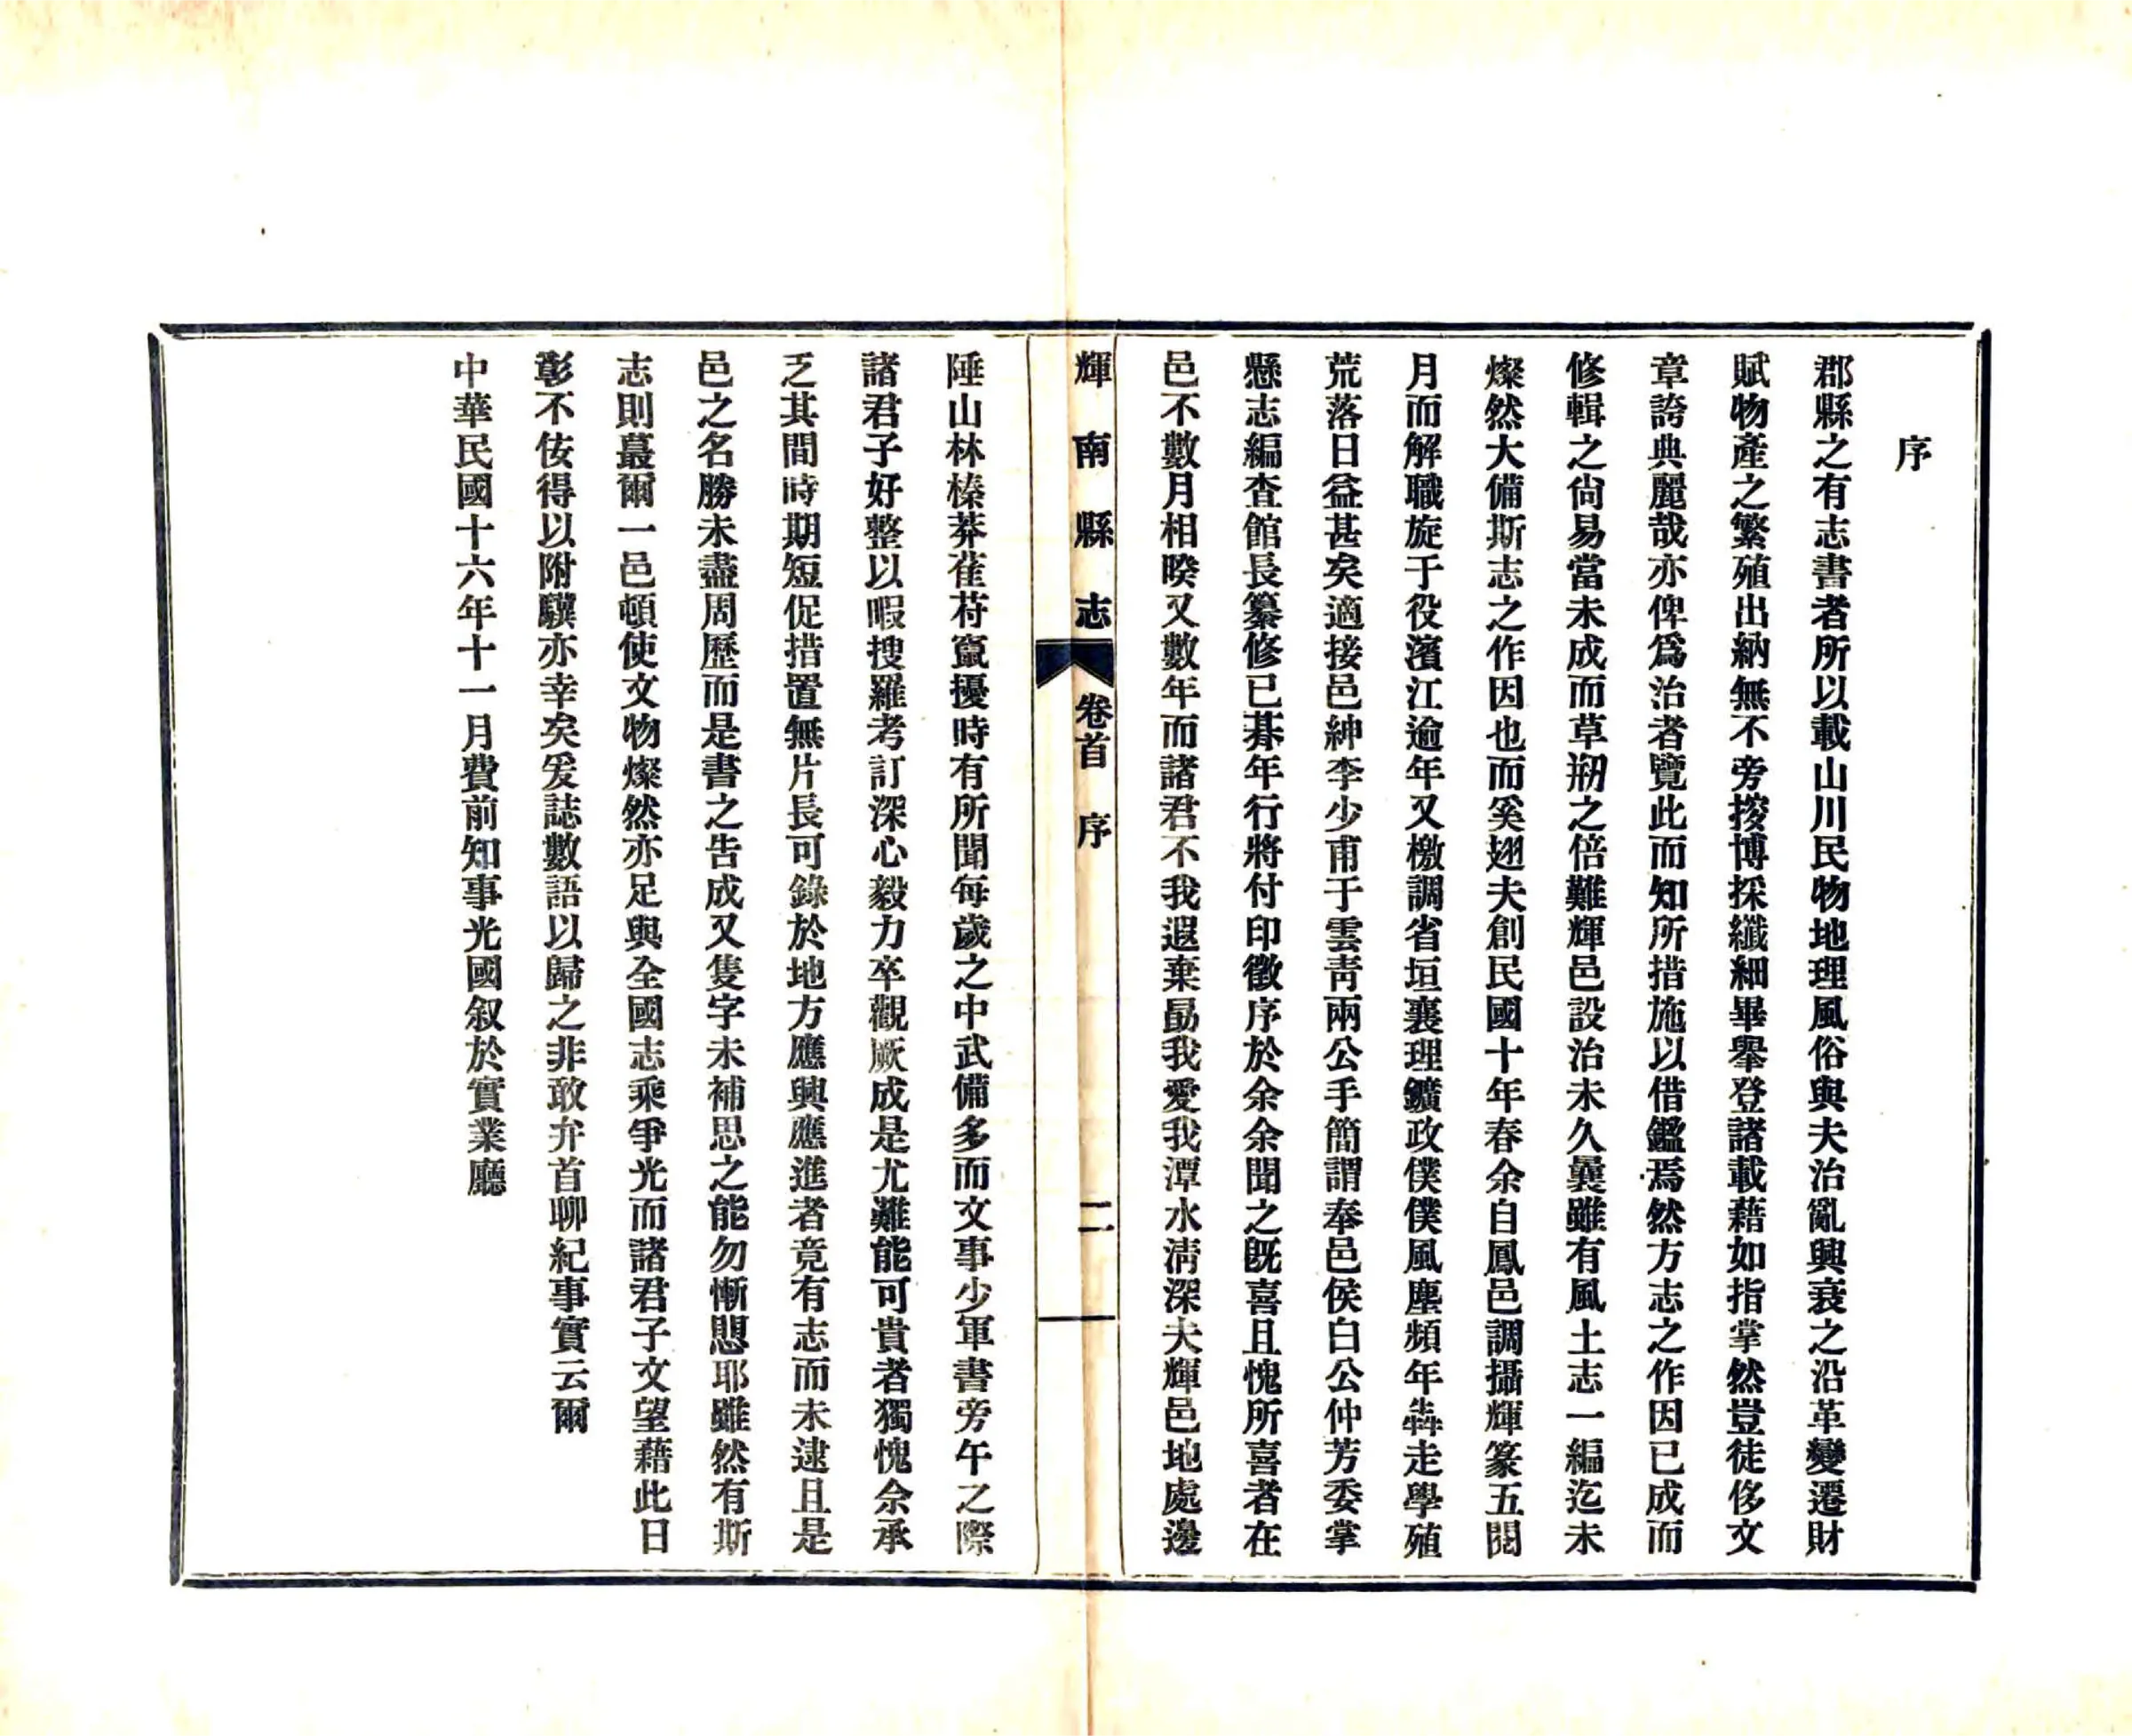 序
郡縣之有志書者所以載山川民物地理風俗與夫治亂興衰之沿革變遷財
賦物產之繁殖出納無不旁搜博採纖細畢舉登諸載藉如指掌然豈徒侈文
章誇典麗哉亦俾爲治者覽此而知所措施以借鑑焉然方志之作因已成而
修輯之尙易當未成而草刱之倍難輝邑設治未久曩雖有風土志一編迄未
燦然大備斯志之作因也而奚翅夫創民國十年春余自鳳邑調攝輝篆五閱
月而解職旋于役濱江逾年又檄調省垣襄理鑛政僕僕風塵頻年犇走學殖
荒落日益甚矣適接邑紳李少甫于雲靑兩公手簡謂奉邑侯白公仲芳委掌
縣志編查館長纂修已朞年行將付印徵序於余余聞之旣喜且愧所喜者在
邑不數月相睽又數年而諸君不我遐棄勗我愛我潭水淸深夫輝邑地處邊
輝南縣志 卷首 序 二
陲山林榛莽萑苻竄擾時有所聞每歲之中武備多而文事少軍書旁午之際
諸君子好整以暇搜羅考訂深心毅力卒觀厥成是尤難能可貴者獨愧余承
乏其間時期短促措置無片長可錄於地方應興應進者竟有志而未逮且是
邑之名勝未盡周歷而是書之告成又隻字未補思之能勿慚恧耶雖然有斯
志則蕞爾一邑頓使文物燦然亦足與全國志乘爭光而諸君子文望藉此日
彰不侫得以附驥亦幸矣爰誌數語以歸之非敢弁首聊紀事實云爾
中華民國十六年十一月費前知事光國叙於實業廳